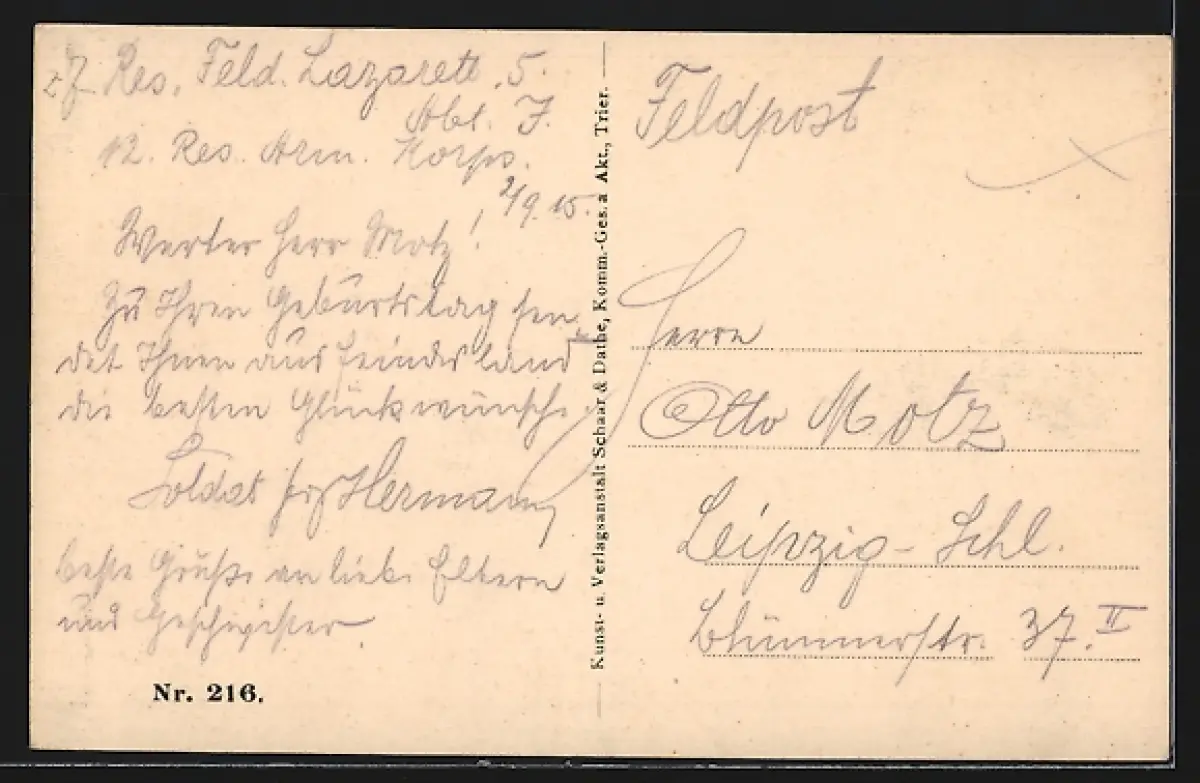 z. Z. Res. Feld. Lazarett 5.
Abt. I.
12. Res. Arm. Korps.
2/9. 15.
Werter Herr Motz!
Zu Ihren Geburtstag sen-
det Ihnen aus Feindesland
die besten Glückwünsche
Soldat Hermann
beste Grüße an liebe Eltern
und Geschwister.
Nr. 216.
Kunst- u. Verlagsanstalt Schaar & Dathe, Komm.-Ges. a Akt., Trier.
Feldpost
Herrn
Otto Motz
Leipzig-Schl.
Blümnerstr. 37. II